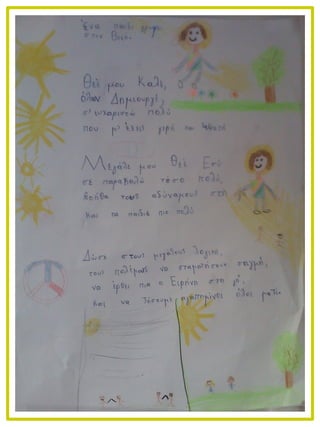 Ένα παιδί
στον Θεό.
Θεέ μου Καλέ,
όλων Δημιουργέ,
σ' ευχαριστώ πολύ
που μ' έχεις γερό και
Μεγάλε μου Θεέ Εσύ
σε παρακαλώ τόσο πολύ,
βοήθα τους αδύναμους στη
και τα παιδιά πιο πολύ
Δώσε στους μεγάλους λογική,
τους πολέμους να σταματήσουν
να έρθει πια η Ειρήνη στη γη,
και να αγαπημένοι όλοι μαζί